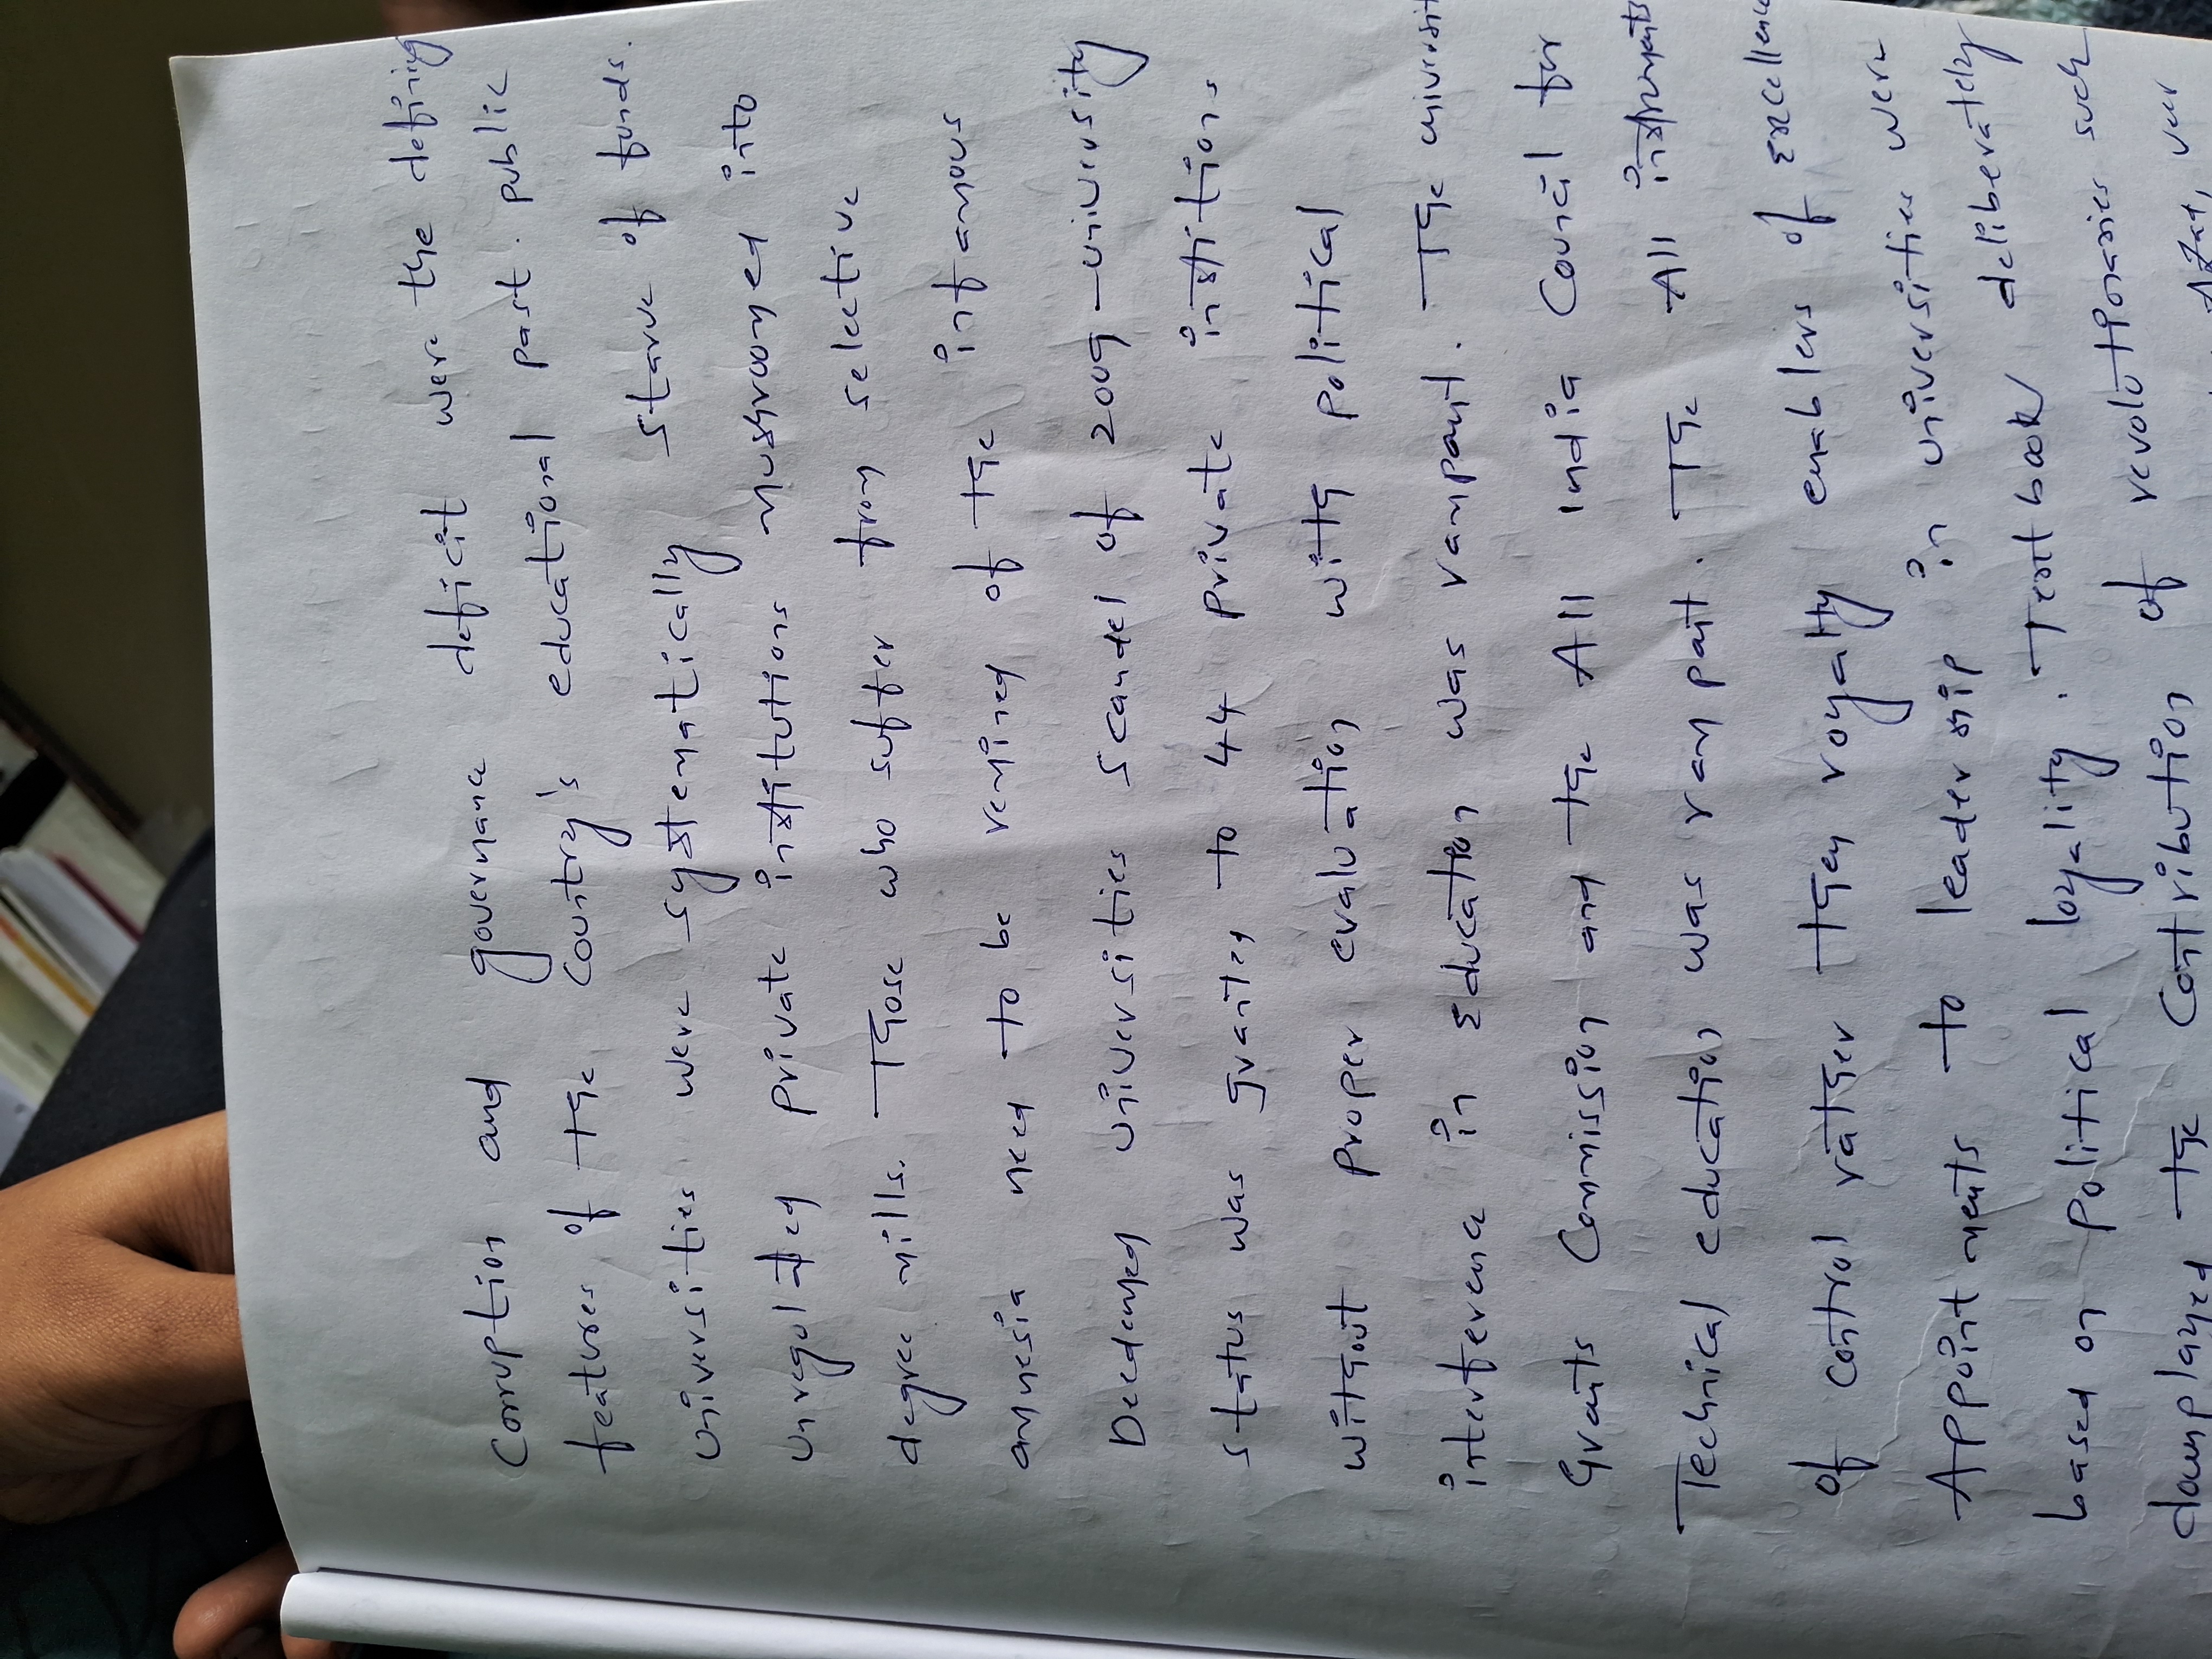 Corruption and governance deficit were the defining
features of the Country's educational past. public
universities were systematically starve of funds.
unregulted private institutions mushroomed into
degree mills. Those who suffer from selective
amnesia need to be remined of the infamous
Deeemed universities Scandel of 2009 - university
status was granted to 44 private institions
without proper evaluation with political
interference in Education was rampant. The universit
Grants Commission and the All India Council for
Technical education was rampart. The All instruments
of control rather they royalty enablers of Excellence
Appointments to leadersip in universities were
based on political loyality. Text book deliberately
downplayed the Contribution of revolutionaries such
Azad, veer